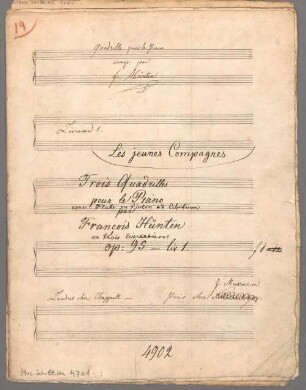 19
Quadrille pour le Piano
comp. par
f. Hünten
Livraison 1.
Les jeunes Compagnes
Trois Quadrilles
pour le Piano
avec Flute ou Violon ad libitum
par
François Hünten
en trois Livraisons
op: 95 — liv 1.
Londres chez Chappell —
4902